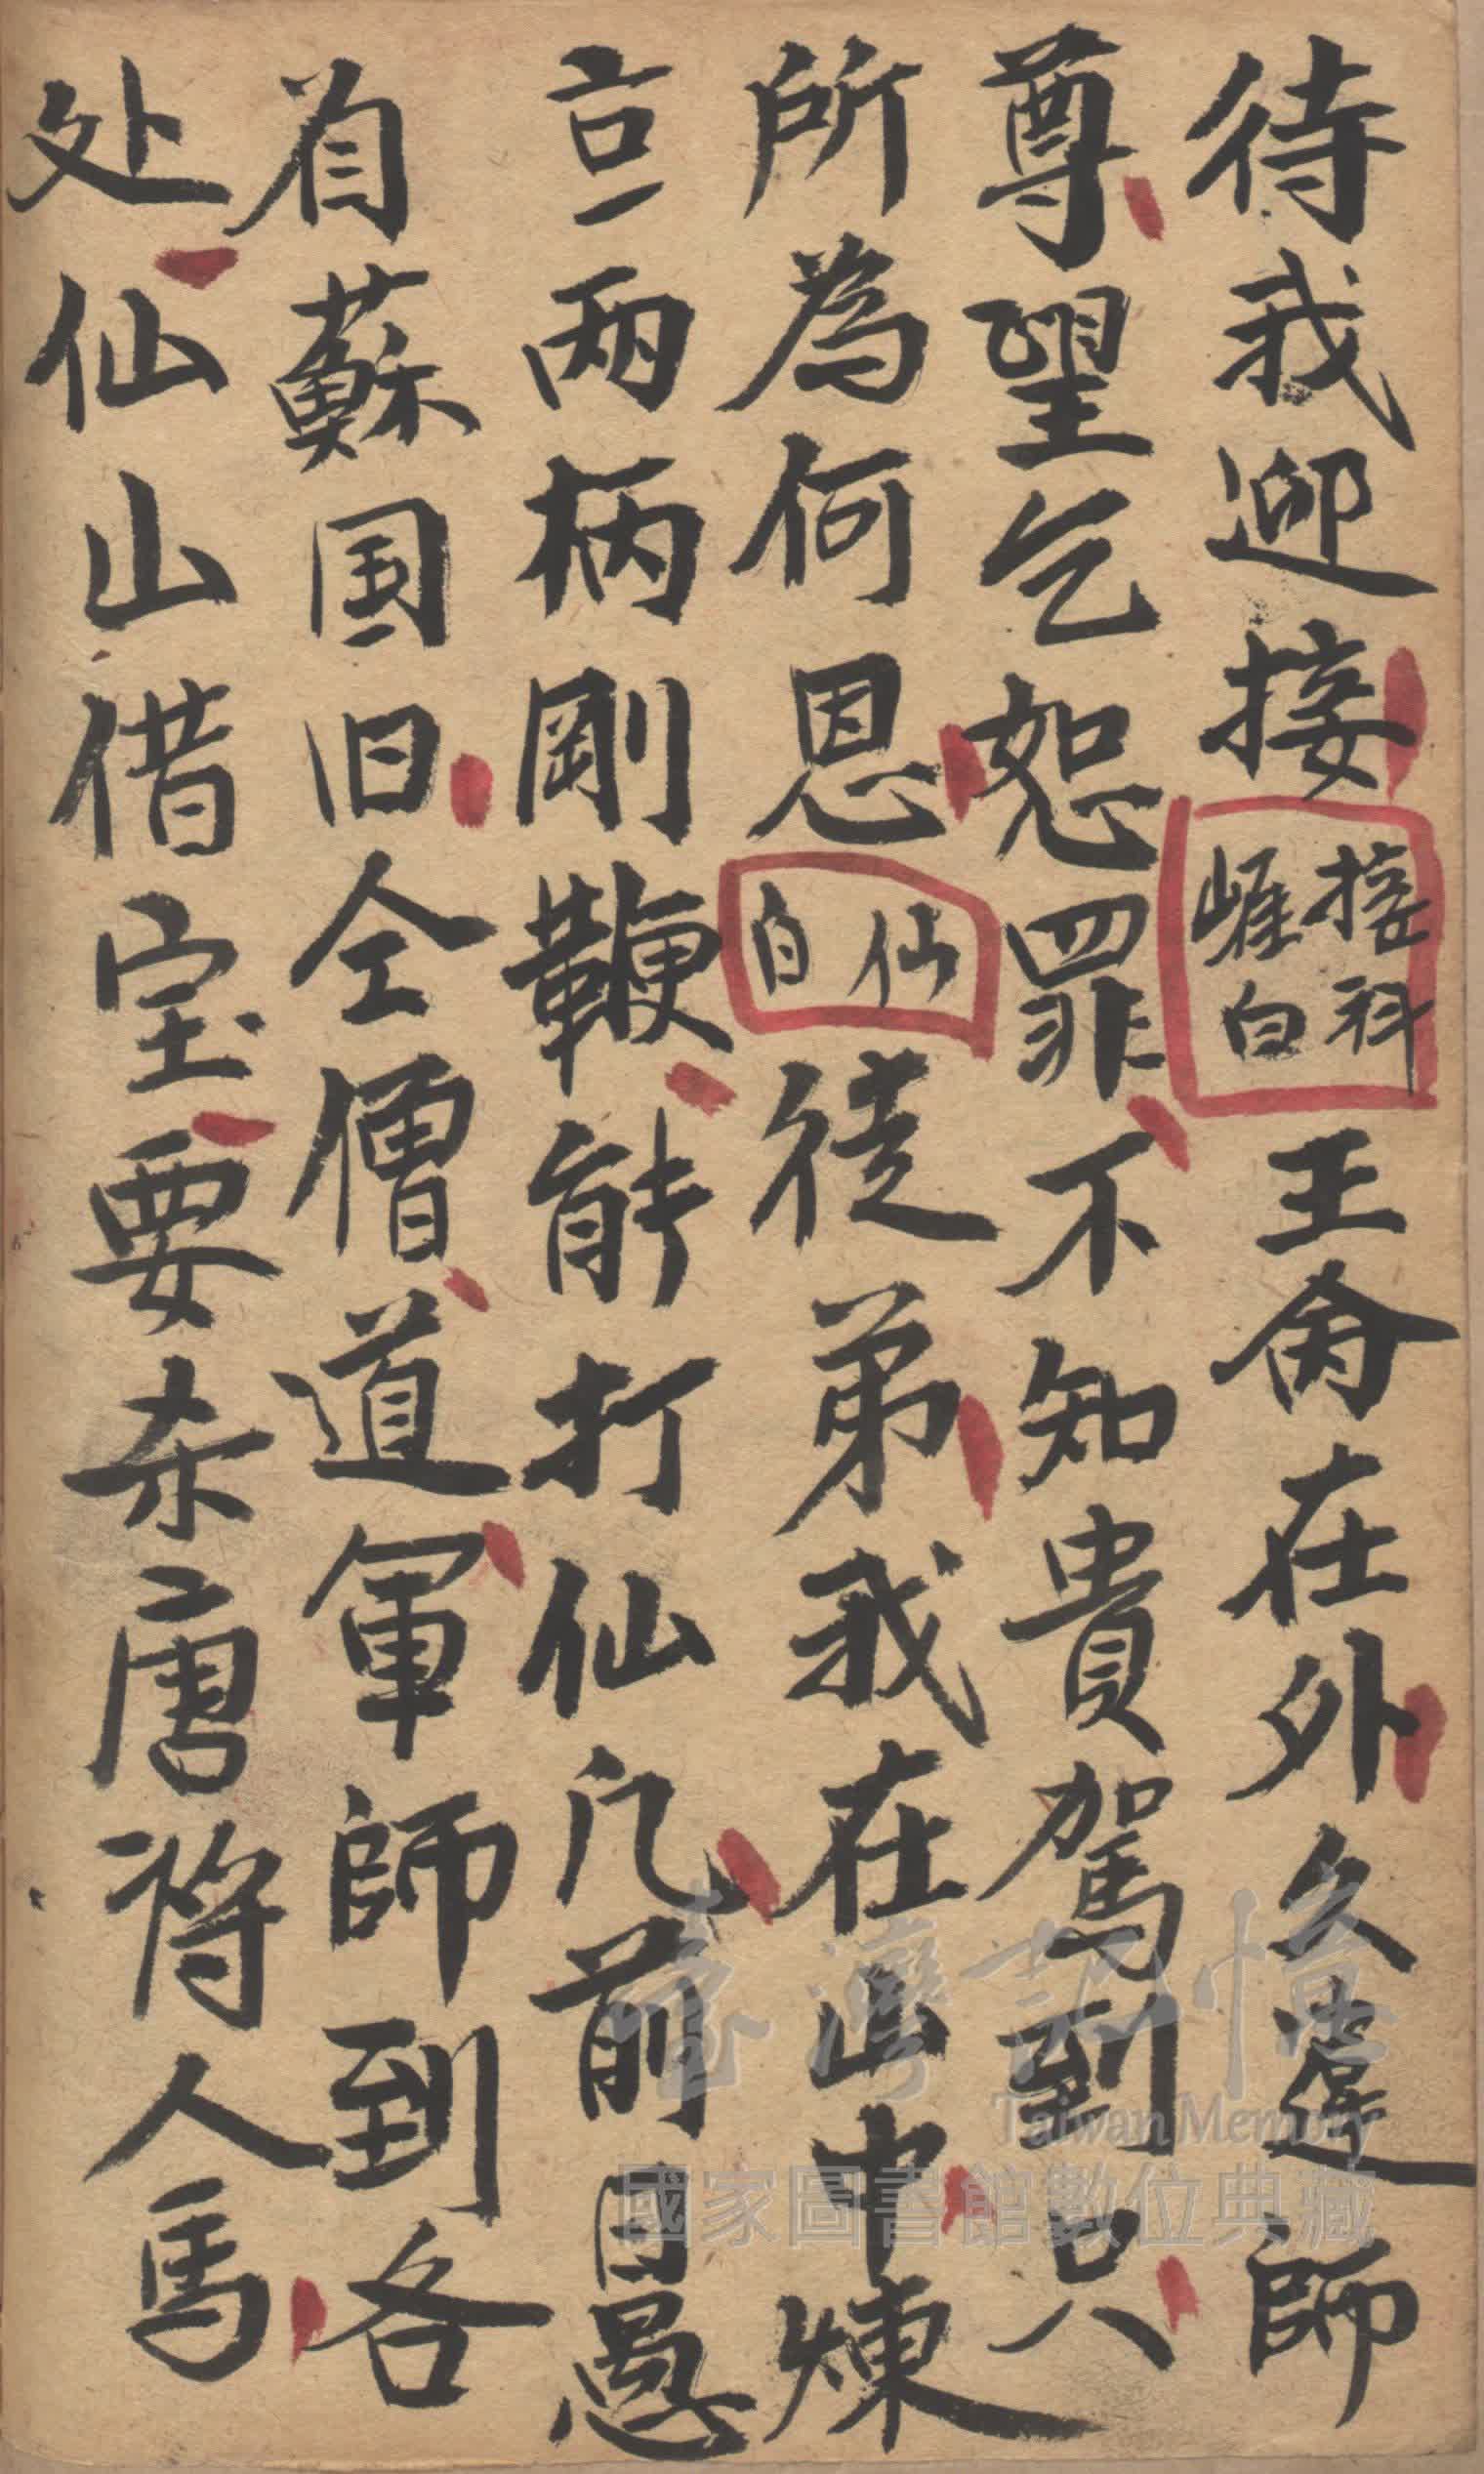 待我迎接
接科
崐白
王肏在外久違師
尊望乞恕罪不知貴駕到只
所為何恩
仙
白
徒弟我在山中煉
言两柄剛鞭能打仙凡前囯愚
有蘇国旧仝僧道軍師到各
处仙山借宝要杀唐将人馬
臺灣記憶
Taiwan Memory
國家圖書館數位典藏